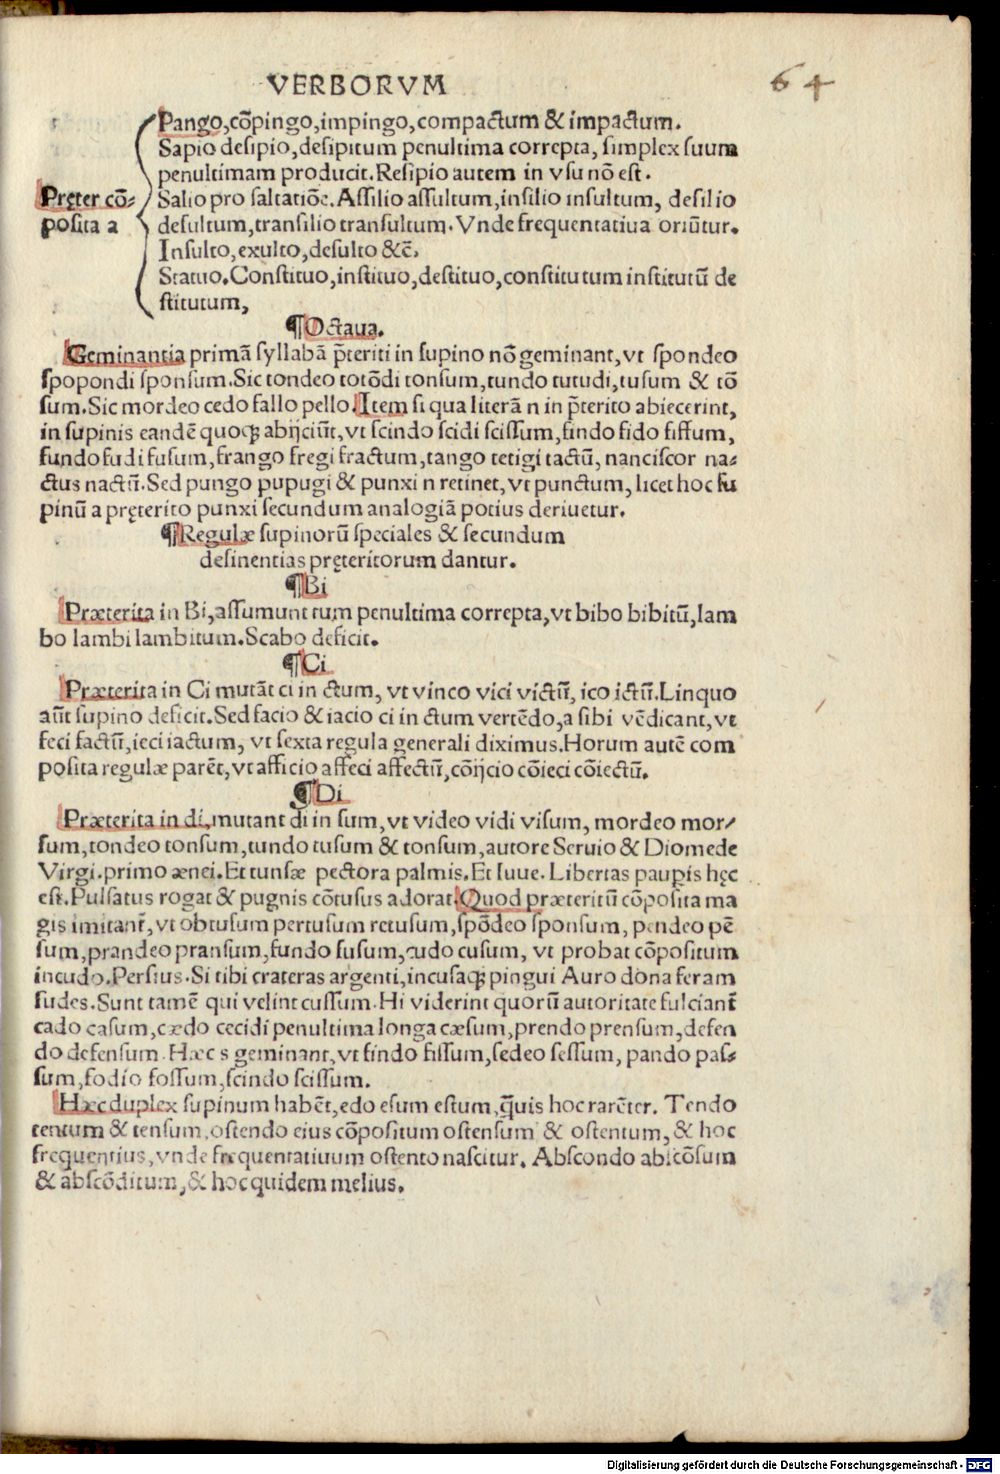 VERBORVM
64
Pango,cōpingo,impingo,compactum & impactum.
Sapio desipio,desipitum penultima correpta, simplex suum
penultimam producit.Resipio autem in vsu nō est.
Pręter cō-
posita a
Salio pro saltatiōe.Assilio assultum,insilio insultum, desilio
desultum,transilio transultum.Vnde frequentatiua oriūtur.
Insulto,exulto,desulto &c̄.
Statuo.Constituo,instituo,destituo,constitutum institutū de
stitutum,
¶Octaua.
Geminantia primā syllabā p̄teriti in supino nō geminant,vt spondeo
spopondi sponsum.Sic tondeo totōdi tonsum,tundo tutudi,tusum & tō
sum.Sic mordeo cedo fallo pello.Item si qua literā n in p̄terito abiecerint,
in supinis eandē quoqꝫ abijciūt,vt scindo scidi scissum,findo fido fissum,
fundo fudi fusum,frango fregi fractum,tango tetigi tactū, nanciscor na-
ctus nactū.Sed pungo pupugi & punxi n retinet,vt punctum, licet hoc su
pinū a pręterito punxi secundum analogiā potius deriuetur.
¶Regulæ supinorū speciales & secundum
desinentias pręteritorum dantur.
¶Bi
Præterita in Bi,assumunt tum penultima correpta,vt bibo bibitū,lam
bo lambi lambitum.Scabo deficit.
¶Ci
Præterita in Ci mutāt ci in ctum, vt vinco vici victū, ico ictū.Linquo
aūt supino deficit.Sed facio & iacio ci in ctum vertēdo,a sibi vēdicant,vt
feci factū,ieci iactum, vt sexta regula generali diximus.Horum autē com
posita regulæ parēt,vt afficio affeci affectū,cōijcio cōieci cōiectū.
¶Di
Præterita in di,mutant di in sum,vt video vidi visum, mordeo mor-
sum,tondeo tonsum,tundo tusum & tonsum,autore Seruio & Diomede
Virgi.primo ænei.Et tunsæ pectora palmis.Et Iuue.Libertas paupis hęc
est.Pulsatus rogat & pugnis cōtusus adorat.Quod præteritū cōposita ma
gis imitant̄,vt obtusum pertusum retusum,spōdeo sponsum, pendeo pē
sum,prandeo pransum,fundo fusum,cudo cusum, vt probat cōpositum
incudo.Persius.Si tibi crateras argenti,incusaqꝫ pingui Auro dona feram
sudes.Sunt tamē qui velint cussum.Hi viderint quorū autoritate fulciant̄
cado casum,cædo cecidi penultima longa cæsum,prendo prensum,defen
do defensum.Hæc s geminant,vt findo fissum,sedeo sessum, pando pas-
sum,fodio fossum,scindo scissum.
Hæc duplex supinum habēt,edo esum estum,q̄uis hoc rarēter. Tendo
tentum & tensum,ostendo eius cōpositum ostensum & ostentum, & hoc
frequentius,vnde frequentatiuum ostento nascitur. Abscondo abscōsum
& abscōditum,& hoc quidem melius.
Digitalisierung gefördert durch die Deutsche Forschungsgemeinschaft - DFG